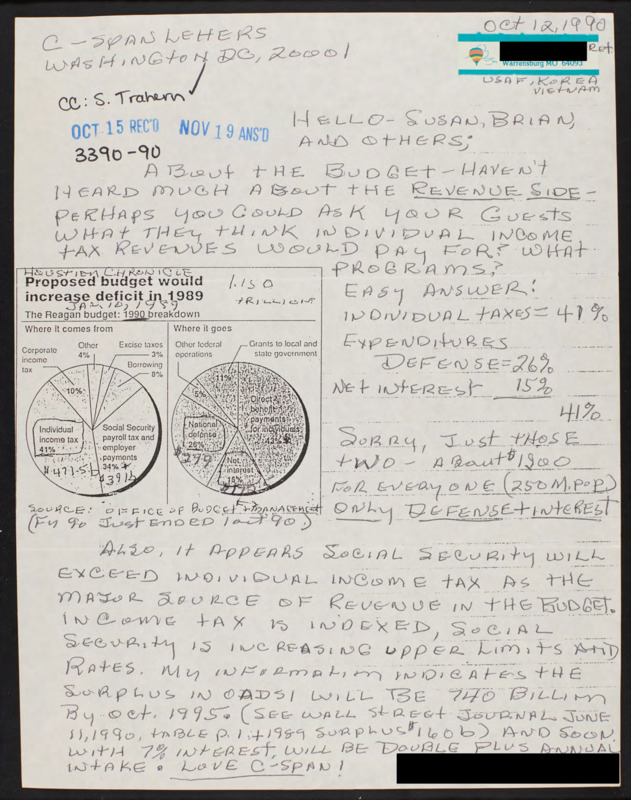 OCT 12, 1990
C-SPAN LETTERS
WASHINGTON DC, 20001
Ret
Warrensburg MO 64093
USAF, KOREA
VIETNAM
CC: S. Trahern ✓
OCT 15 REC'D NOV 19 ANS'D
3390-90
HELLO - SUSAN, BRIAN,
AND OTHERS;
ABOUT THE BUDGET - HAVEN'T
HEARD MUCH ABOUT THE REVENUE SIDE -
PERHAPS YOU COULD ASK YOUR GUESTS
WHAT THEY THINK INDIVIDUAL INCOME
TAX REVENUES WOULD PAY FOR? WHAT
PROGRAMS?
HOUSTON CHRONICLE
Proposed budget would
increase deficit in 1989
JAN 10, 1989
1.150
TRILLION
The Reagan budget: 1990 breakdown
Where it comes from
Corporate
income
tax
Other
4%
Excise taxes
3%
Borrowing
8%
10%
Individual
income tax
41%
$471.5b
Social Security
payroll tax and
employer
payments
34%
$391b
Where it goes
Other federal
operations
Grants to local and
state government
11%
5%
Direct
benefit
payments
for individuals
43%
National
defense
26%
$299
Net
interest
15%
SOURCE: OFFICE OF BUDGET & MANAGEMENT
(FY 90 JUST ENDED 1 OCT 90.)
EASY ANSWER!
INDIVIDUAL TAXES = 41%
EXPENDITURES
DEFENSE = 26%
NET INTEREST 15%
41%
SORRY, JUST THOSE
TWO - ABOUT $1900
FOR EVERYONE (250M. POP.)
ONLY DEFENSE + INTEREST
ALSO, IT APPEARS SOCIAL SECURITY WILL
EXCEED INDIVIDUAL INCOME TAX AS THE
MAJOR SOURCE OF REVENUE IN THE BUDGET.
INCOME TAX IS INDEXED, SOCIAL
SECURITY IS INCREASING UPPER LIMITS AND
RATES. MY INFORMATION INDICATES THE
SURPLUS IN OADSI WILL BE 740 BILLION
BY OCT. 1995. (SEE WALL STREET JOURNAL JUNE
11, 1990, TABLE P. 1, + 1989 SURPLUS $160b) AND SOON,
WITH 7% INTEREST, WILL BE DOUBLE PLUS ANNUAL
INTAKE. LOVE C-SPAN!